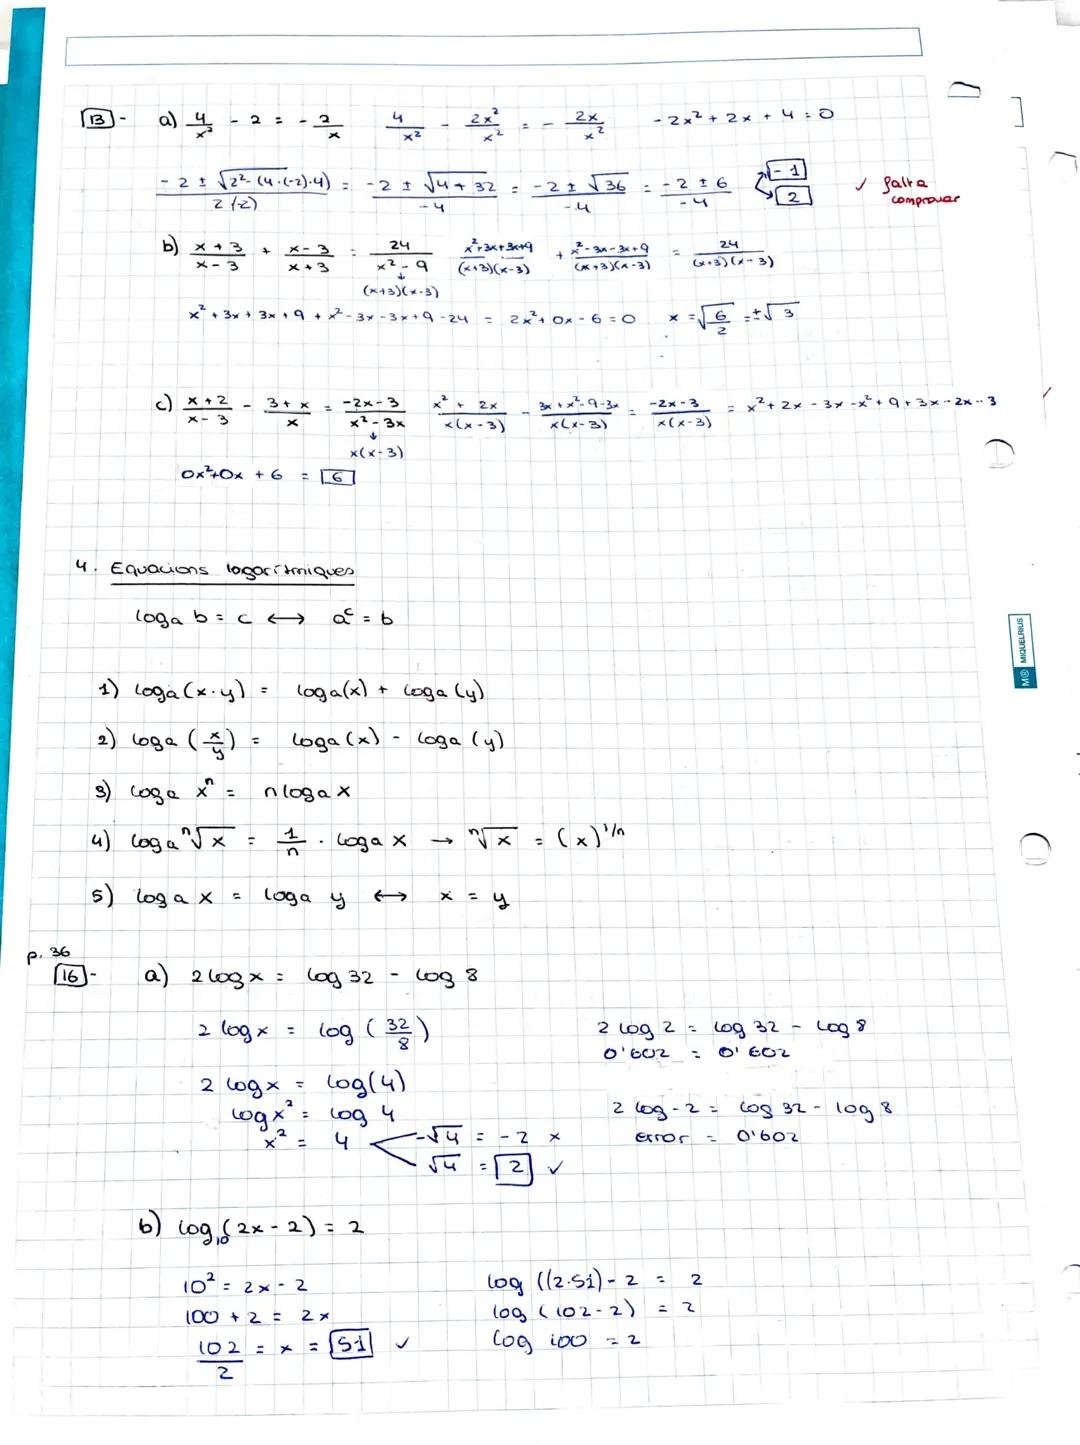 13 - a) 4/x² - 2 = - 2/x   4/x² - 2x²/x² = - 2x/x²   - 2x² + 2x + 4 = 0
(- 2 ± √(2² - (4·(-2)·4)))/(2(-2)) = (-2 ± √(4 + 32))/-4 = (-2 ± √36)/-4 = (-2 ± 6)/-4   -1   2   ✓ falta comprovar
b) (x + 3)/(x - 3) + (x - 3)/(x + 3) = 24/(x² - 9)   (x² + 3x + 3x + 9)/((x+3)(x-3)) + (x² - 3x - 3x + 9)/((x+3)(x-3)) = 24/((x+3)(x-3))
↓
(x+3)(x-3)
x² + 3x + 3x + 9 + x² - 3x - 3x + 9 - 24 = 2x² + 0x - 6 = 0   x = √(6/2) = ±√3
c) (x + 2)/(x - 3) - (3 + x)/x = (-2x - 3)/(x² - 3x)   (x² + 2x)/(x(x-3)) - (3x + x² - 9 - 3x)/(x(x-3)) = (-2x - 3)/(x(x-3)) = x² + 2x - 3x - x² + 9 + 3x - 2x - 3
↓
x(x-3)
0x² + 0x + 6 = 6
4. Equacions logarítmiques
logₐ b = c ⟷ aᶜ = b
1) logₐ (x · y) = logₐ (x) + logₐ (y)
2) logₐ (x/y) = logₐ (x) - logₐ (y)
3) logₐ xⁿ = n logₐ x
4) logₐ ⁿ√x = 1/n · logₐ x → ⁿ√x = (x)^1/n
5) logₐ x = logₐ y ⟷ x = y
p. 36
16 - a) 2 log x = log 32 - log 8
2 log x = log (32/8)   2 log 2 = log 32 - log 8
0'602 = 0'602
2 log x = log (4)
log x² = log 4   2 log -2 = log 32 - log 8
x² = 4   -√4 = -2 ×   error = 0'602
√4 = 2 ✓
b) log₁₀ (2x - 2) = 2
10² = 2x - 2   log ((2·51) - 2 = 2
100 + 2 = 2x   log (102 - 2) = 2
102/2 = x = 51 ✓   log 100 = 2
MIQUELRIUS